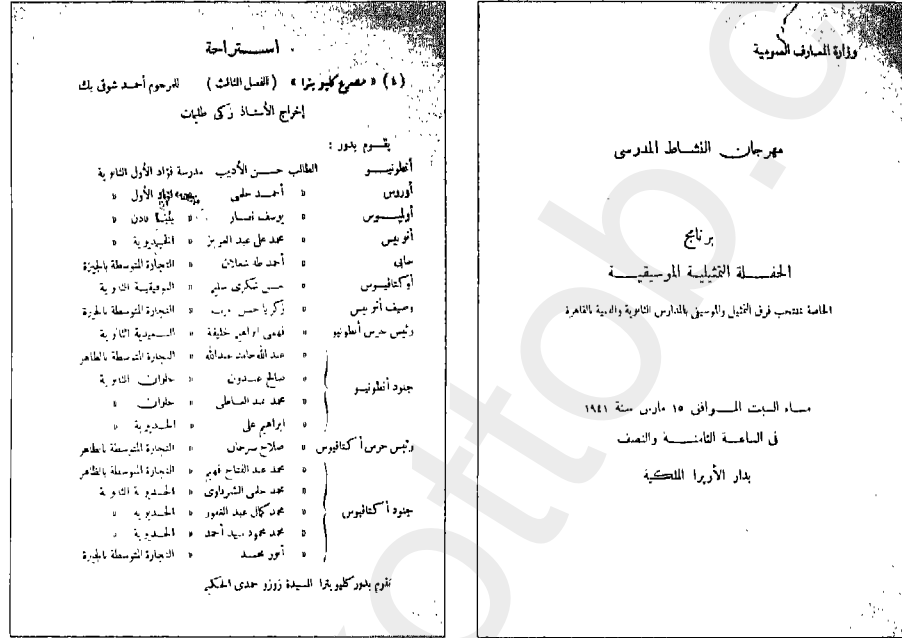 وزارة المعارف العمومية
مهرجان النشاط المدرسى
برنامج
الحفلة التمثيلية الموسيقية
الخاصة بمنتخب فرق التمثيل والموسيقى بالمدارس الثانوية والفنية بالقاهرة
مساء السبت الموافق ١٥ مارس سنة ١٩٤١
فى الساعة الثامنة والنصف
بدار الأوبرا الملكية
استراحة
(٤) « مصرع كليوبترا » (الفصل الثالث) للمرحوم أحمد شوقى بك
إخراج الأستاذ زكى طليمات
يقوم بدور :
أنطونيو الطالب حسن الأديب مدرسة فؤاد الأول الثانوية
أوروس » أحمد حلمى » فؤاد الأول »
أولمبوس » يوسف نصار »
أنوبيس » محمد على عبد العزيز » الخديوية »
حابى » أحمد طه شعلان » التجارة المتوسطة بالجيزة
أوكتافيوس » حسن شكرى سليم » التوفيقية الثانوية
» زكريا حسن » التجارة المتوسطة بالجيزة
رئيس حرس أنطونيو » فهمى ابراهيم خليفة » السعيدية الثانوية
جنود أنطونيو » عبد الله حامد عبدالله » التجارة المتوسطة بالظاهر
» صالح عبدون » حلوان الثانوية
» محمد عبد العاطى » حلوان »
» ابراهيم على » الخديوية »
رئيس حرس أكتافيوس » صلاح سرحان » التجارة المتوسطة بالظاهر
جنود أكتافيوس » محمد عبد الفتاح فهيم » التجارة المتوسطة بالظاهر
» محمد حلمى الشرقاوى » الخديوية الثانوية
» محمد كمال عبد الغفور » الخديوية »
» محمد محمود سيد أحمد » الخديوية »
» أنور محمد » التجارة المتوسطة بالجيزة
تقوم بدور كليوبترا السيدة زوزو حمدى الحكيم